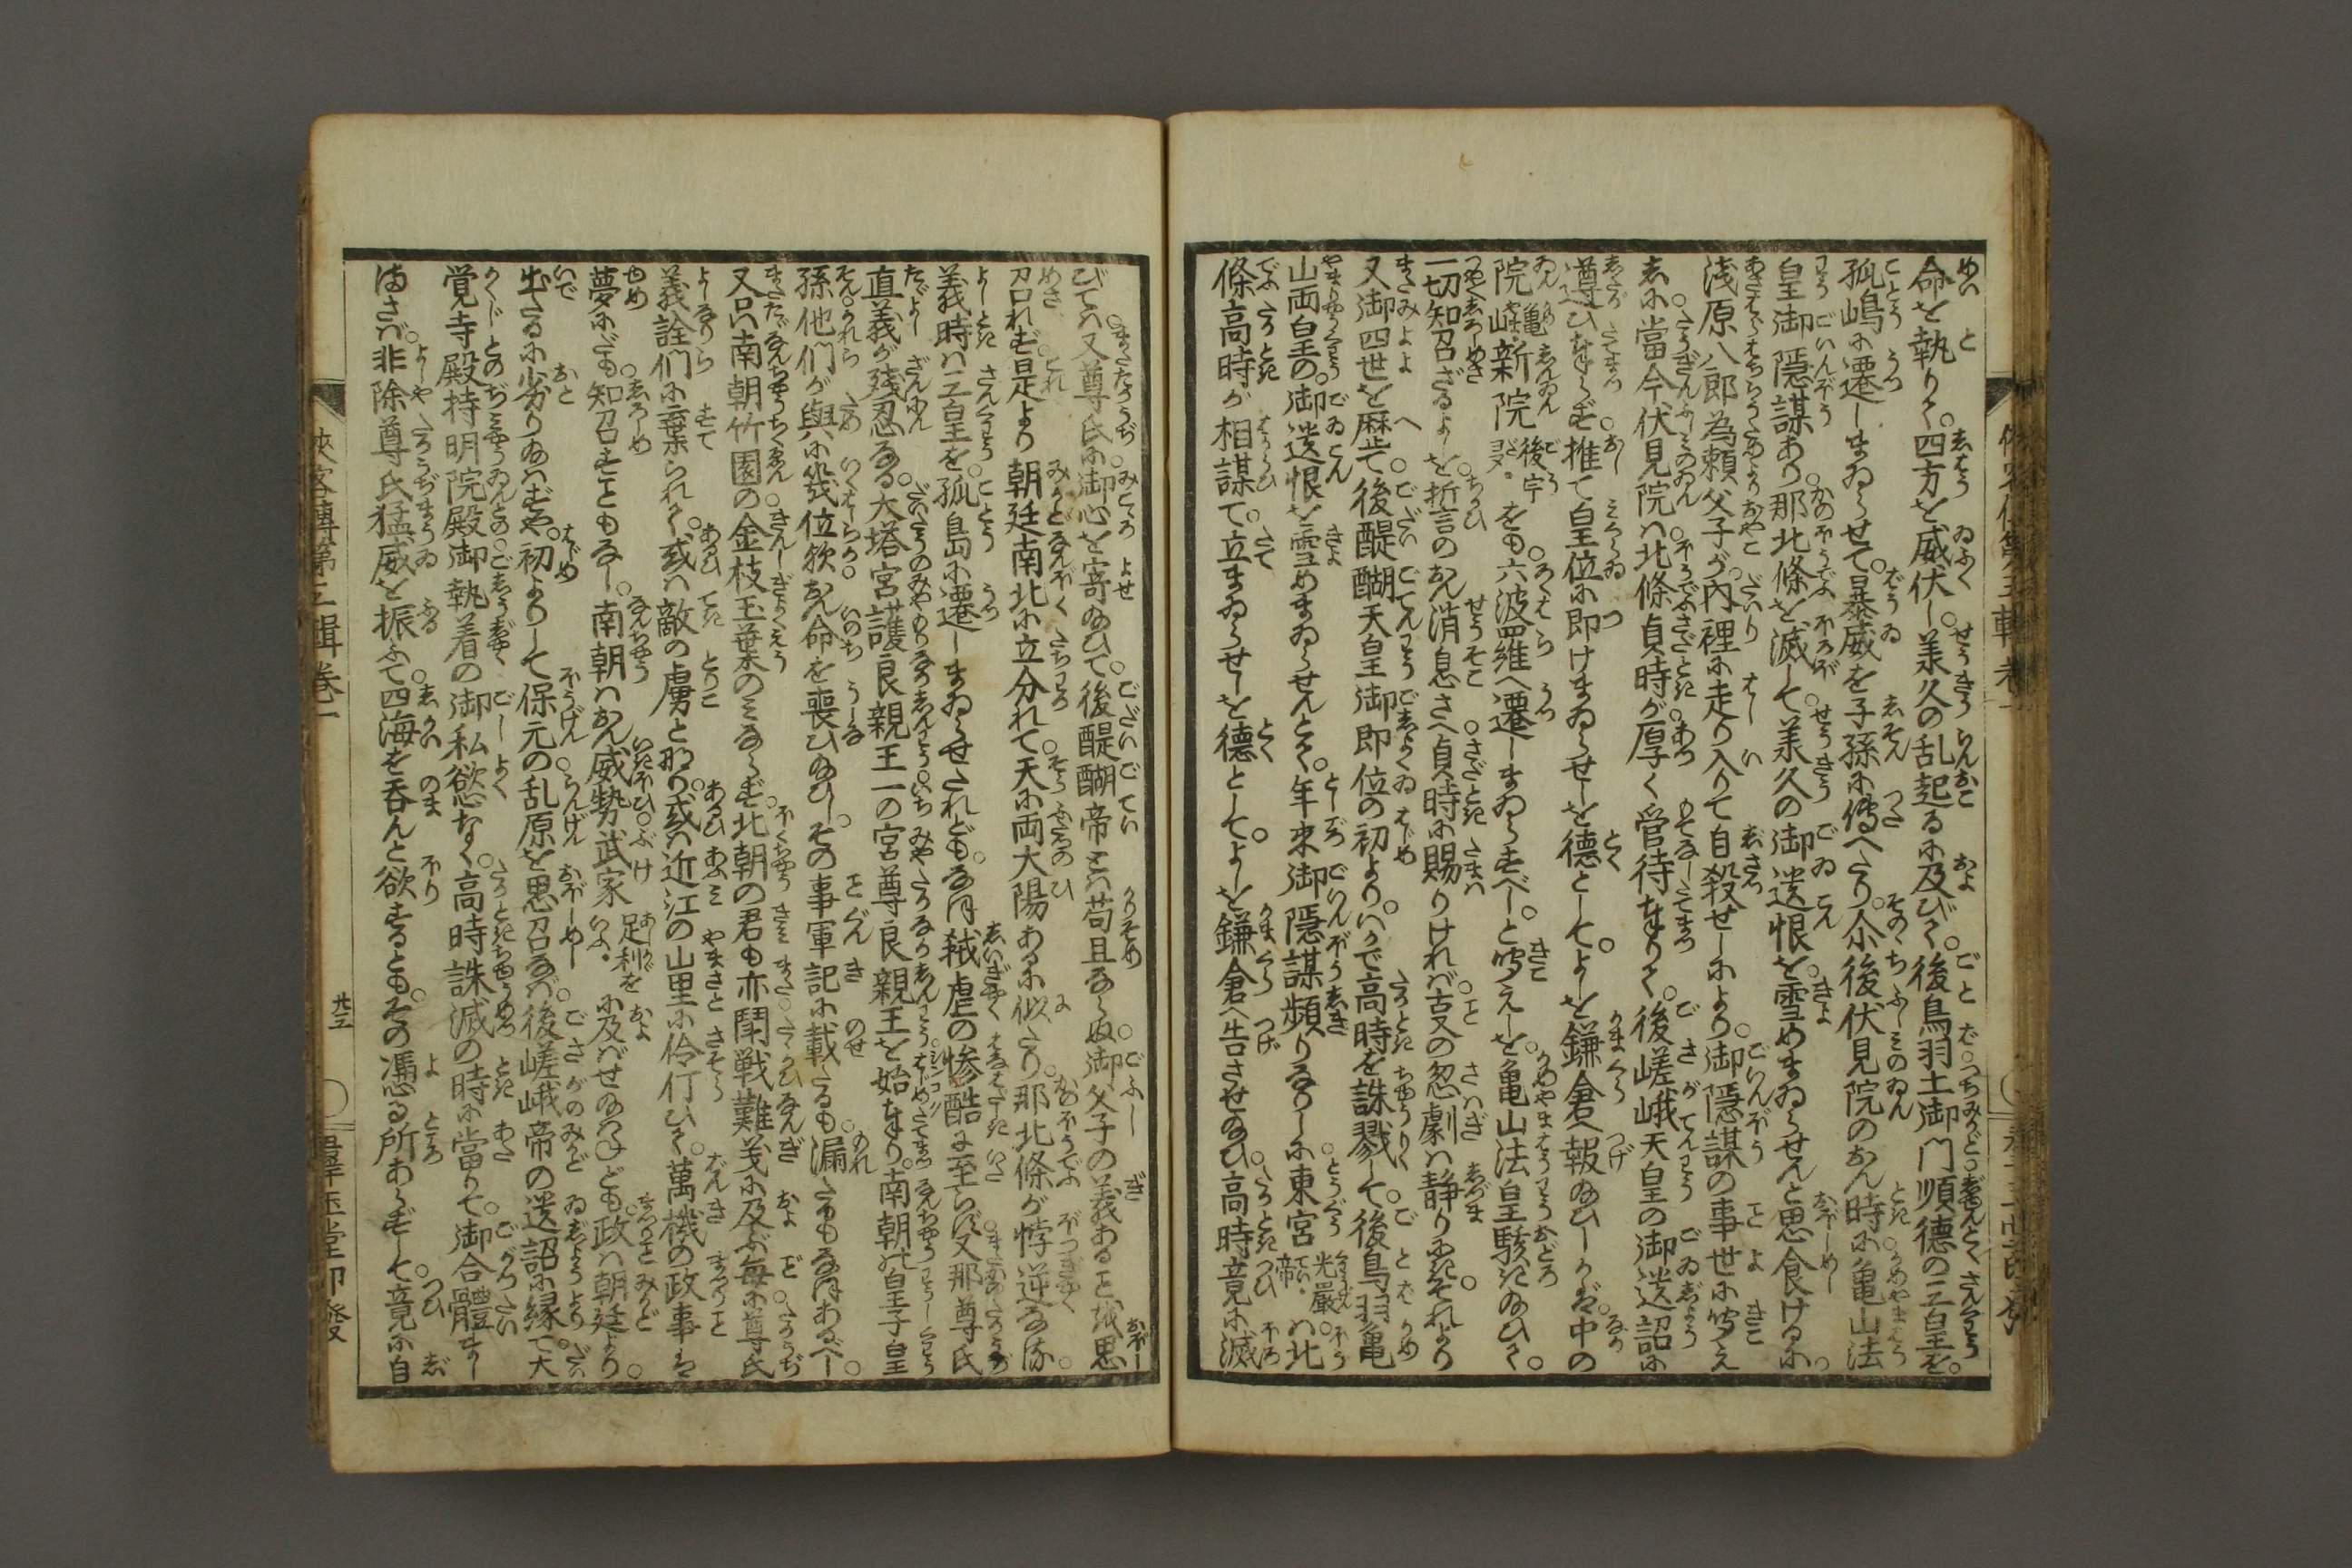 命を執りて。四方を威伏し。羕久の乱起るに及びて。後鳥羽土御門順徳の三皇を。
孤嶋に遷しまゐらせて。暴威を子孫に傳へたり。尒後伏見院のおん時に。亀山法
皇御隠謀あり。那北條を滅して。羕久の御遺恨を。雪めまゐらせんと思食けるに。
浅原八郎為頼父子が。内裡に走り入りて自殺せしにより。御隠謀の事世に聞え
しに。當今伏見院は。北條貞時が厚く管待奉りて。後嵯峨天皇の御遺詔に
遵ひ奉らず。推て皇位に即けまゐらせしを徳として。よしを鎌倉へ報給ひしかば。中の
院亀山新院後宇多をも。六波羅へ遷しまゐらすべし。と聞えしを。亀山法皇駭き給ひて。
一切知召ざるよしを。誓言のおん消息さへ。貞時に賜りければ。古文の怱劇は静りにき。それより
又御四世を歴て。後醍醐天皇御即位の初より。いかで高時を誅戮して。後鳥羽亀
山両皇の。御遺恨を雪めまゐらせんとて。年来御隠謀頻りなりしに。東宮光嚴帝は。北
條高時が相謀て。立まゐらせしを徳として。よしを鎌倉へ告させ給ひ。高時竟に滅
びては。又尊氏に御心を寄給ひて。後醍醐帝とは。苟且ならぬ御父子の義あることを思
召れず。是より朝廷南北に立分れて。天に両大陽あるに似たり。那北條が悖逆なる。
義時は三皇を。孤島に遷しまゐらせたれども。なほ弑虐の惨酷に至らず。又那尊氏
直義が残忍なる。大塔宮護良親王一の宮尊良親王を始奉り。南朝の皇子皇
孫。他們が與に幾位歟。おん命を喪ひ給ひし。その事軍記に載たるも。漏たるもなほあるべし。
又只南朝竹園の。金枝玉葉のみならず。北朝の君も亦。鬪戦難義に及ぶ毎に。尊氏
義詮們に棄られて。或は敵の虜となり。或は近江の山里に伶仃ひて。萬機の政事は
夢にだも知召すこともなし。南朝はおん威勢。武家足利をいふ。に及ばせ給はねども。政は朝廷より
出たるに劣り給はずや。初よりして保元の乱原を思召なば。後嵯峨帝の遺詔に縁て。大
覚寺殿持明院殿。御執着の御私慾なく。高時誅滅の時に當りて。御合體まし
まさば。非除尊氏猛威を振ふて。四海を呑んと欲するとも。その馮る所あらずして。竟に自
侠客傳第三輯巻一
廿三
群玉堂印發